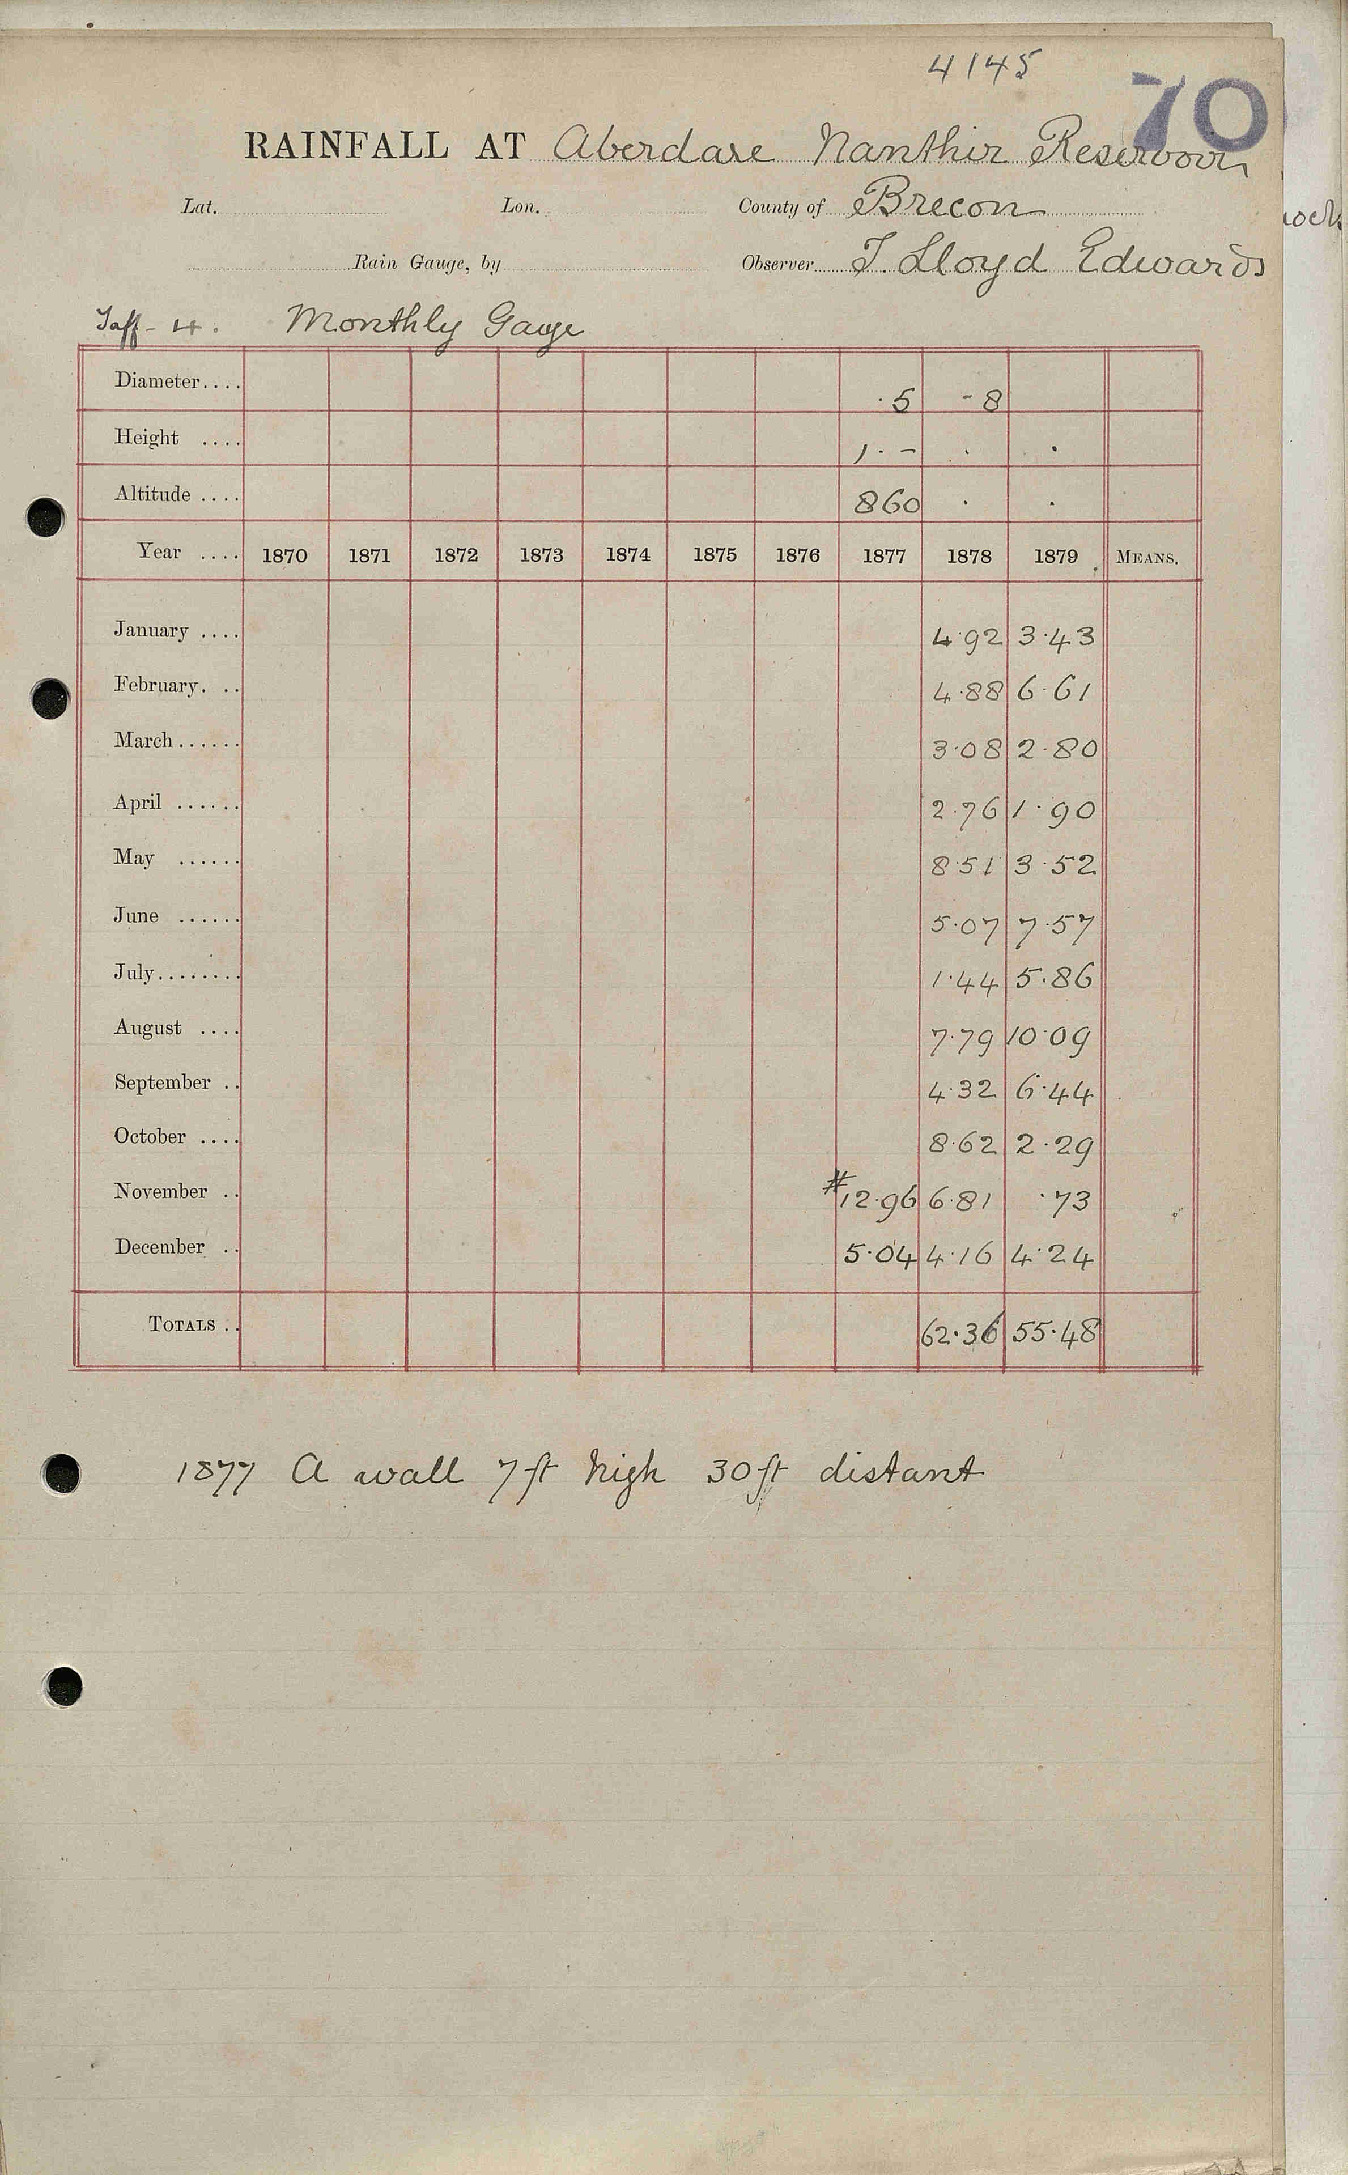 4145
70
RAINFALL AT Aberdare Nanthir Reservoir
Lat. Lon. County of Brecon
Rain Gauge, by Observer T. Lloyd Edwards
Taff - 4. Monthly Gauge
Diameter.... · 5 - 8
Height .... 1 · - · ·
Altitude .... 860 · ·
Year .... 1870 1871 1872 1873 1874 1875 1876 1877 1878 1879 MEANS.
January .... 4·92 3·43
February. .. 4·88 6·61
March...... 3·08 2·80
April ...... 2·76 1·90
May ...... 8·51 3·52
June ...... 5·07 7·57
July........ 1·44 5·86
August .... 7·79 10·09
September .. 4·32 6·44
October .... 8·62 2·29
November .. #12·96 6·81 ·73
December .. 5·04 4·16 4·24
TOTALS .. 62·36 55·48
1877 A wall 7ft high 30ft distant